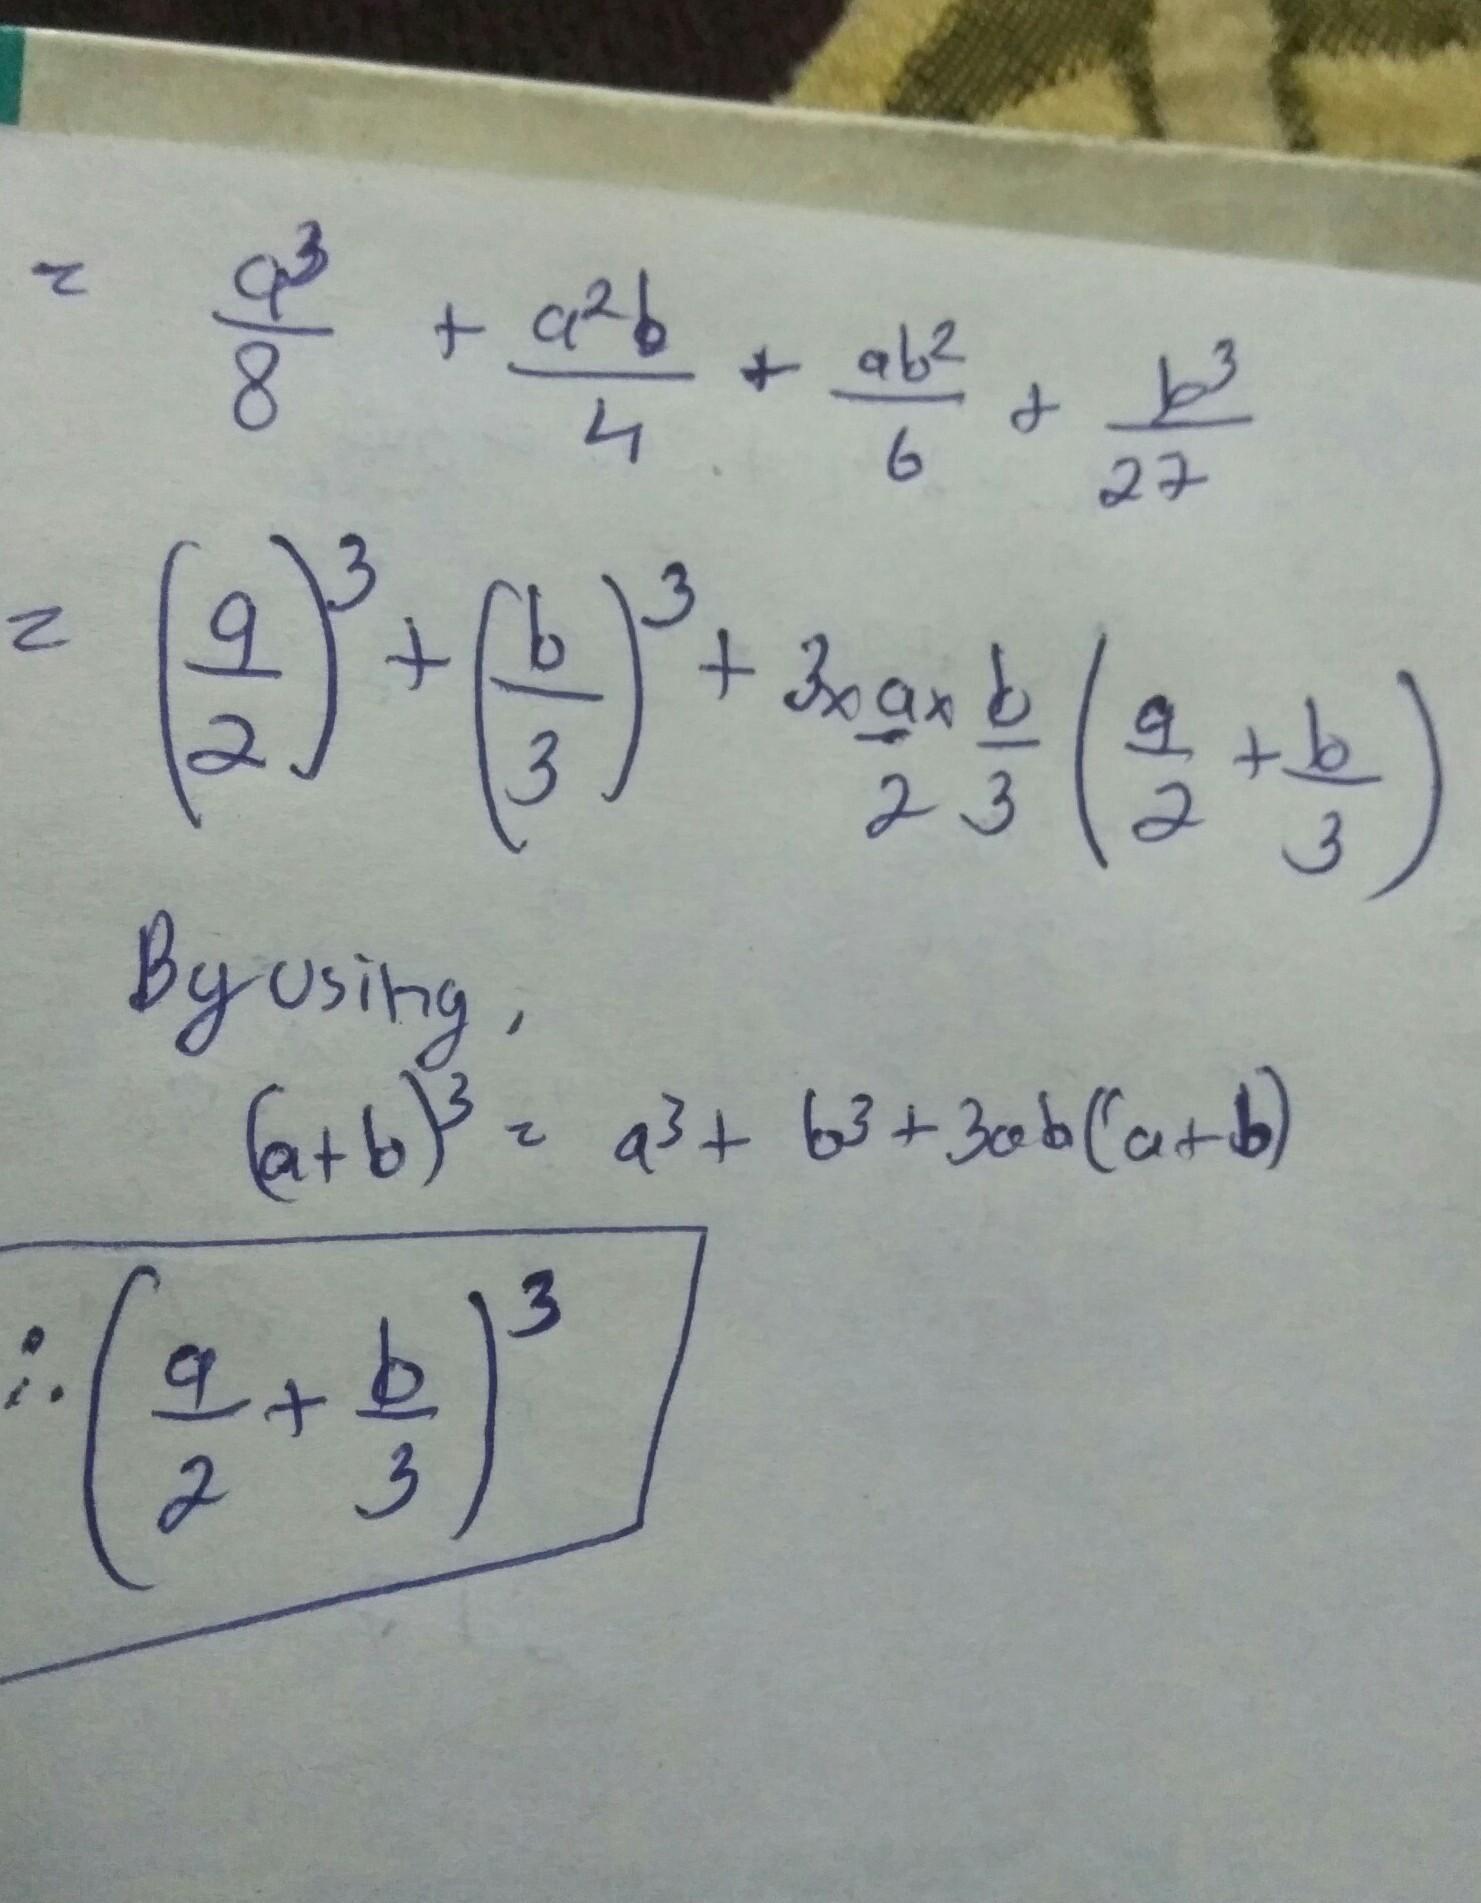 = a³/8 + a²b/4 + ab²/6 + b³/27
= (a/2)³ + (b/3)³ + 3×a/2×b/3 (a/2 + b/3)
By using,
(a+b)³ = a³ + b³ + 3ab(a+b)
∴ (a/2 + b/3)³